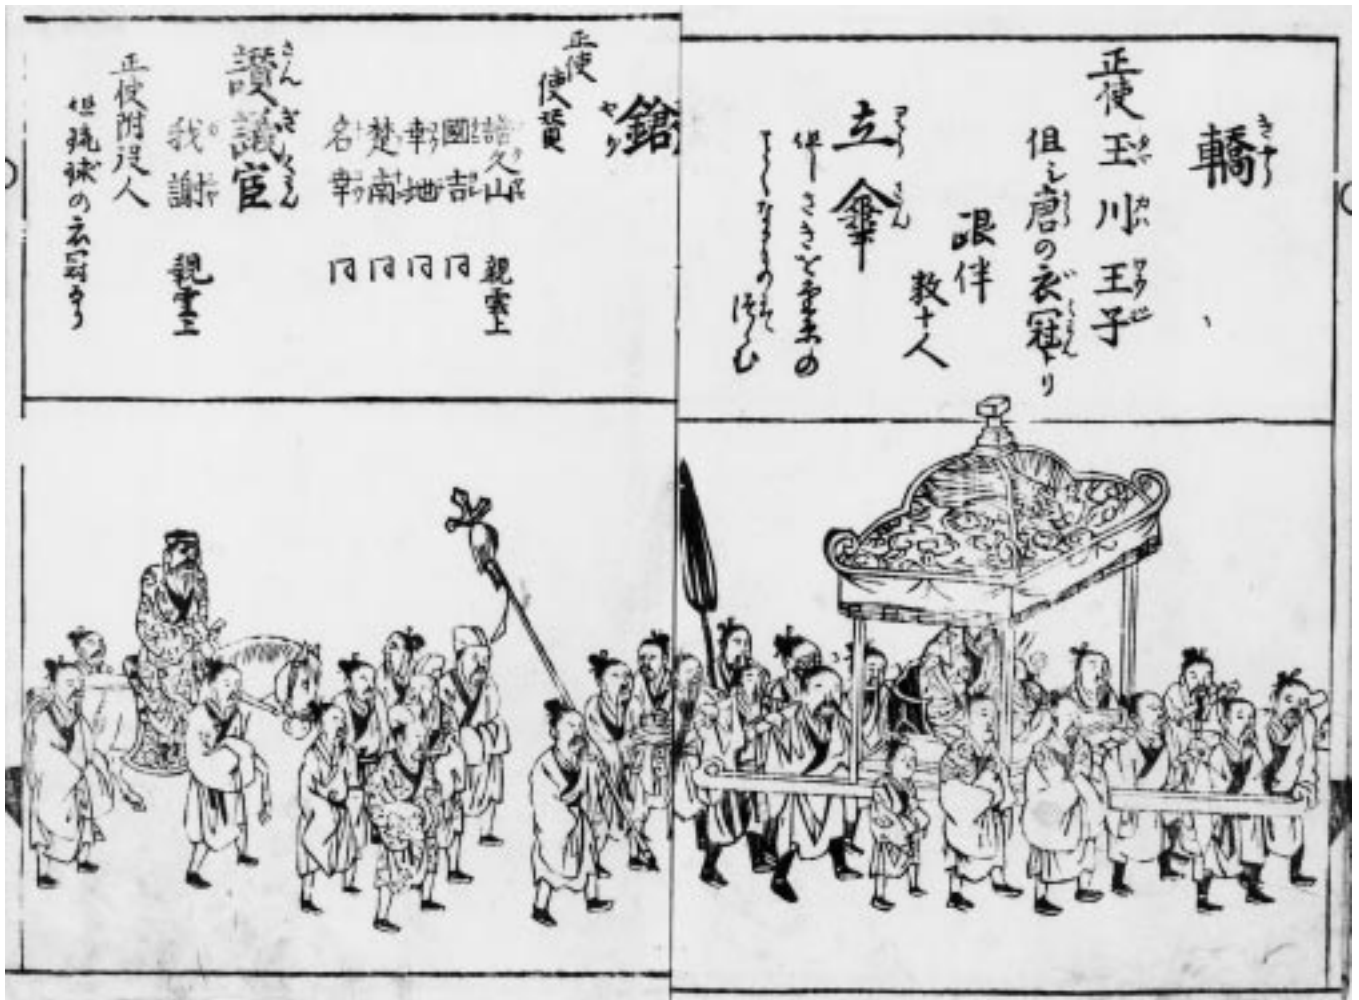 轎
正使 玉川王子
但し唐の衣冠なり
跟伴
数十人
立傘
鎗
正使
使賛
譜久山 親雲上
國吉 同
幸地 同
楚南 同
名幸 同
讃議官
我謝 親雲上
正使附役人
但琉球の衣冠なり